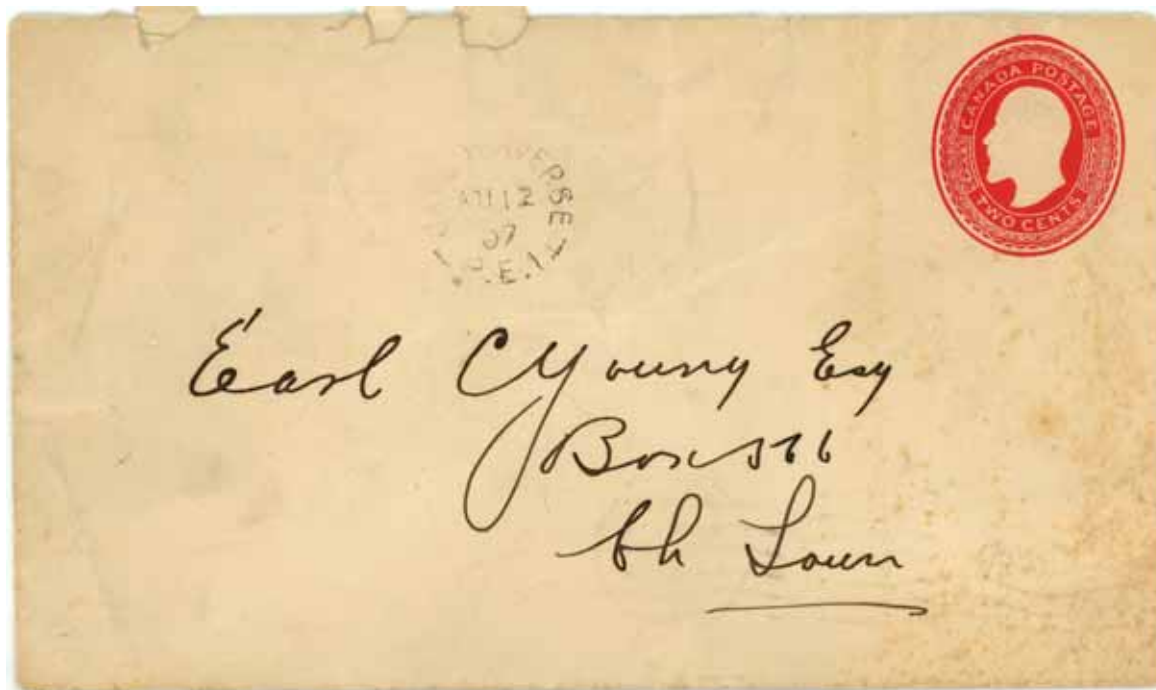 CANADA POSTAGE
TWO CENTS
12
07
P.E.I
Earl C Young Esq
Box 566
Ch Town